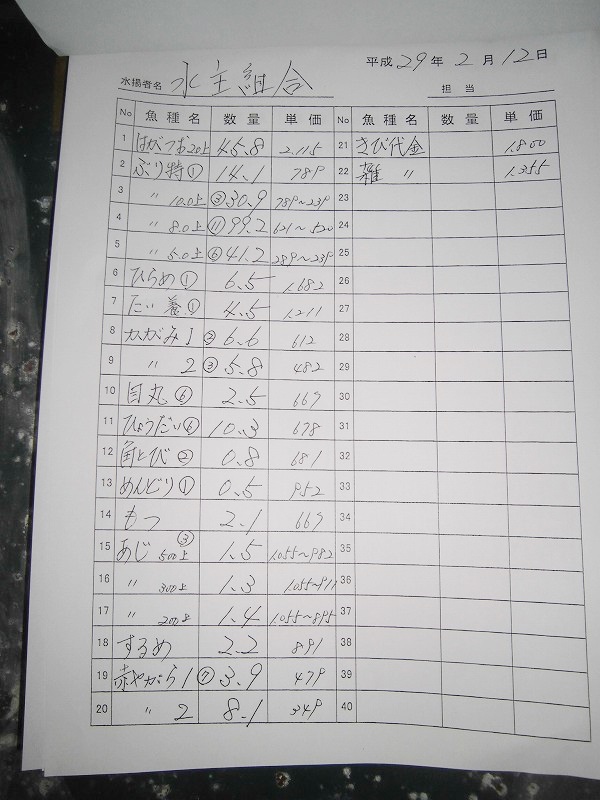 平成 29 年 2 月 12 日
水揚者名 水主組合 担当
No 魚種名 数量 単価 No 魚種名 数量 単価
1 はがつお20上 45.8 2.115 21 きび代金 1.800
2 ぶり特① 14.1 789 22 雑 〃 1.355
3 〃 10.0上 ③ 30.9 789~239 23
4 〃 8.0上 ⑪ 99.2 621~520 24
5 〃 5.0上 ⑥ 41.2 289~239 25
6 ひらめ① 6.5 1.682 26
7 たい養① 4.5 1.211 27
8 かがみ1 ② 6.6 612 28
9 〃 2 ③ 5.8 482 29
10 目丸⑥ 2.5 669 30
11 ひょうだい⑥ 10.3 678 31
12 角とび② 0.8 681 32
13 めんどり① 0.5 952 33
14 もつ 2.1 669 34
15 あじ 500上 ③ 1.5 1.055~982 35
16 〃 300上 1.3 1.055~911 36
17 〃 200上 1.4 1.055~895 37
18 するめ 2.2 891 38
19 赤やがら1 ⑦ 3.9 479 39
20 〃 2 8.1 349 40